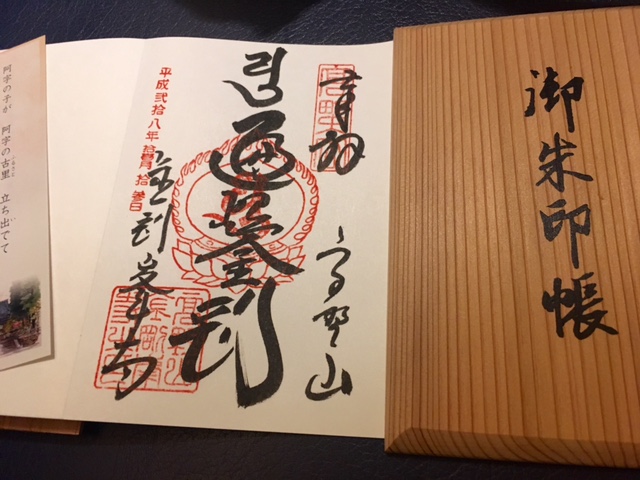 御朱印帳
奉拝
高野山
遍照金剛
平成弐拾八年
金剛峯寺
阿字の子が 阿字の古里 立ち出でて